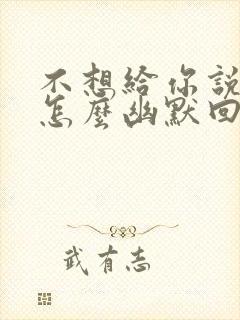 不想給你說
怎麼幽默回
武有志